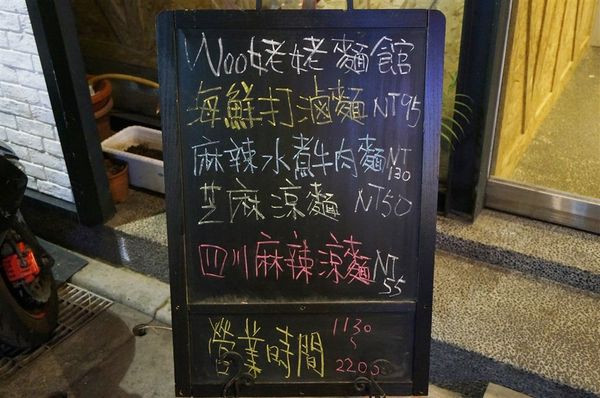 Woo姥姥麵館
海鮮打滷麵 NT95
麻辣水煮牛肉麵 NT130
芝麻涼麵 NT50
四川麻辣涼麵 NT55
營業時間 1130~2200